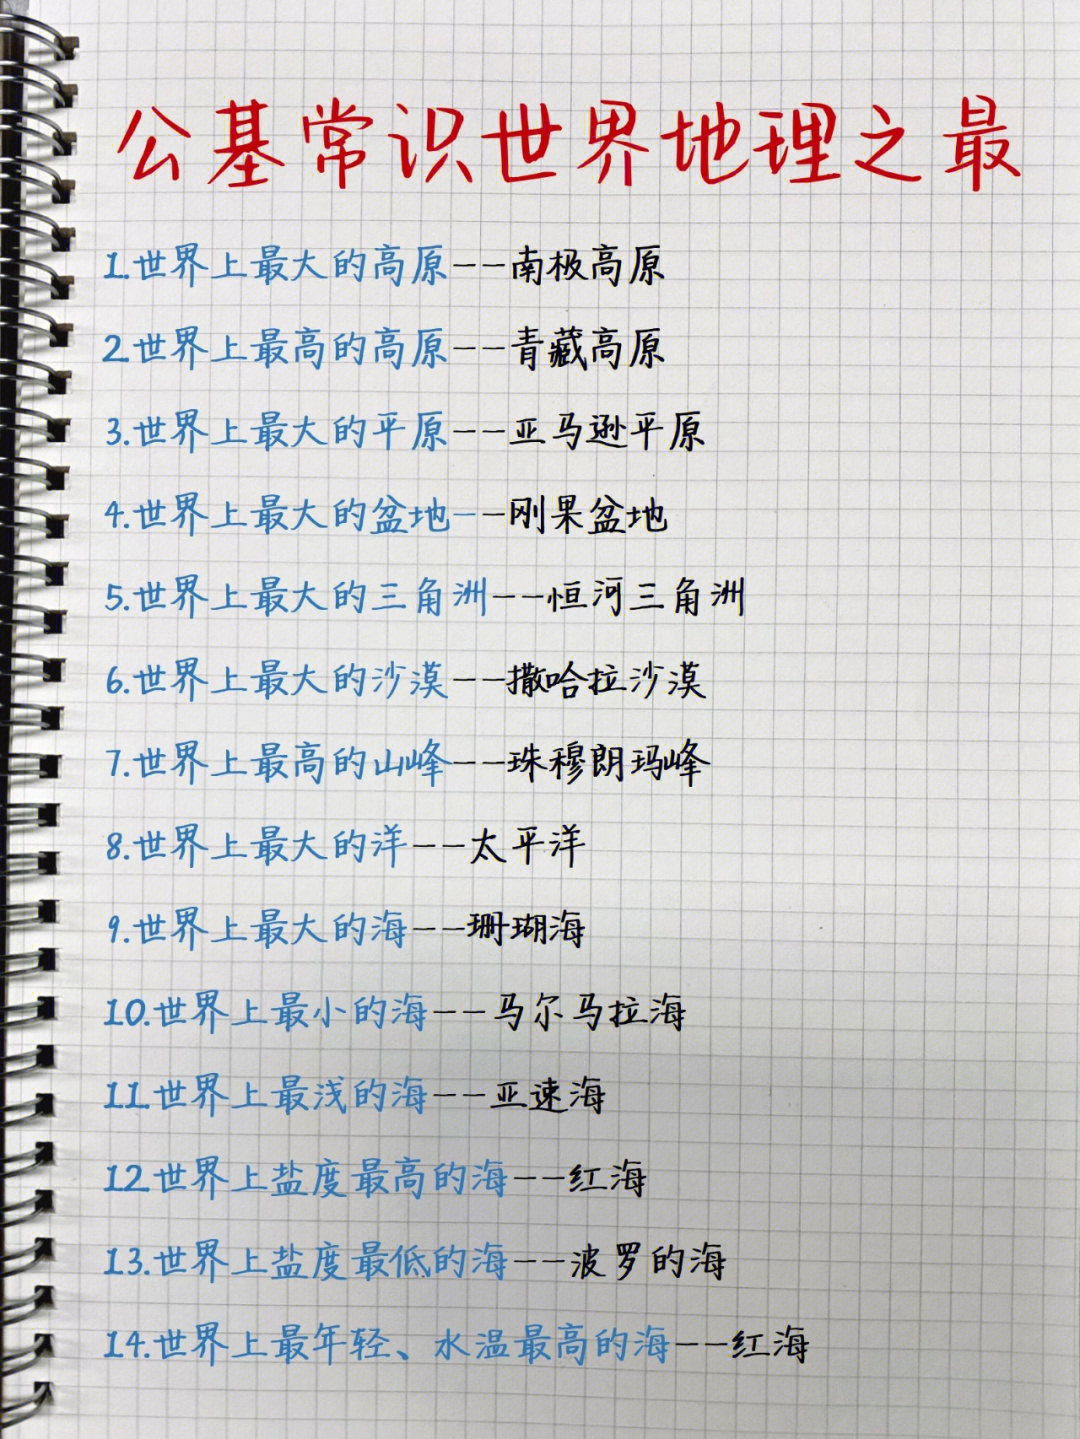 公基常识世界地理之最
1.世界上最大的高原--南极高原
2.世界上最高的高原--青藏高原
3.世界上最大的平原--亚马逊平原
4.世界上最大的盆地--刚果盆地
5.世界上最大的三角洲--恒河三角洲
6.世界上最大的沙漠--撒哈拉沙漠
7.世界上最高的山峰--珠穆朗玛峰
8.世界上最大的洋--太平洋
9.世界上最大的海--珊瑚海
10.世界上最小的海--马尔马拉海
11.世界上最浅的海--亚速海
12.世界上盐度最高的海--红海
13.世界上盐度最低的海--波罗的海
14.世界上最年轻、水温最高的海--红海